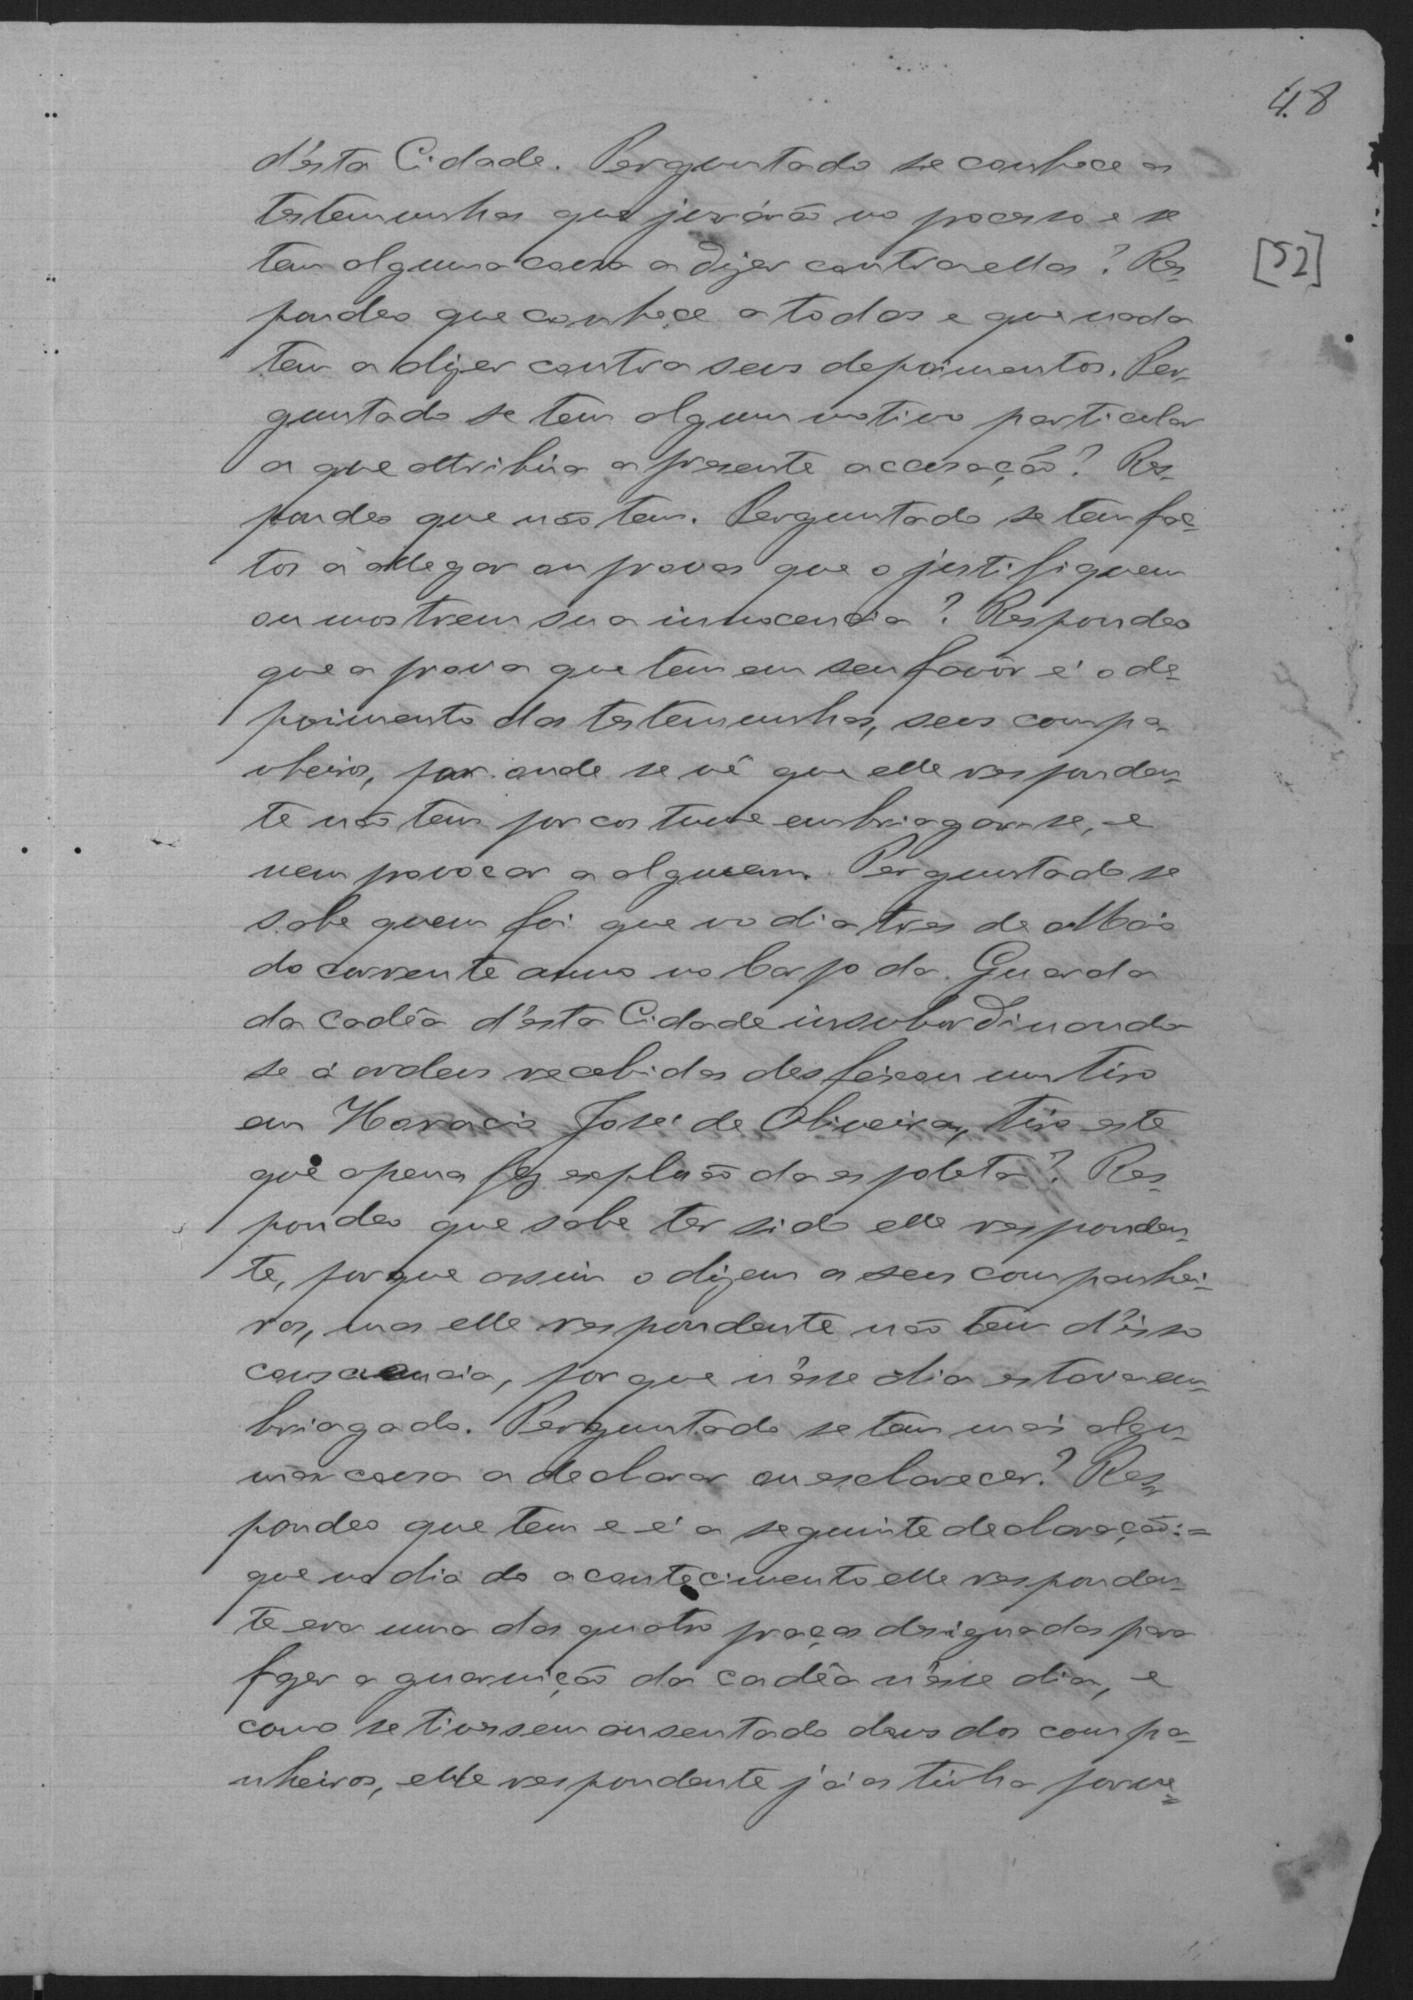 48
d'esta Cidade. Perguntado se conhece as
[52]
testemunhas que jurárão no processo e se
tem alguma cousa a dizer contra ellas? Res-
pondeo que conhece a todas e que nada
tem a dizer contra seus depoimentos. Per-
guntado se tem algum motivo particular
a que attribúa a presente accusação? Res-
pondeo que não tem. Perguntado se tem fac-
tos á allegar ou provas que o justifiquem
ou mostrem sua innocencia? Respondeo
que a prova que tem em seu favôr é o de-
poimento das testemunhas, seus compa-
nheiros, por onde se vê que elle responden-
te não tem por costume embriagar-se, e
nem provocar a alguem. Perguntado se
sabe quem foi que no dia tres de Maio
do corrente anno no Corpo da Guarda
da cadêa d'esta Cidade insubordinando
se á ordens recebidas desfeixou um tiro
em Horacio José de Oliveira, tiro este
que apenas fez explosão da espoleta? Res-
pondeo que sabe ter sido elle responden-
te, porque assim o dizem os seus companhei-
ros, mas elle respondente não tem d'isso
consciencia, porque n'esse dia estava em-
briagado. Perguntado se tem mais algu-
ma cousa a declarar ou esclarecer? Res-
pondeo que tem e é a seguinte declaração:=
que no dia do acontecimento elle responden-
te era uma das quatro praças designadas para
fazer a guarnição da cadêa n'esse dia, e
como se tivessem ausentado dous dos compa-
nheiros, elle respondente já os tinha por ve=